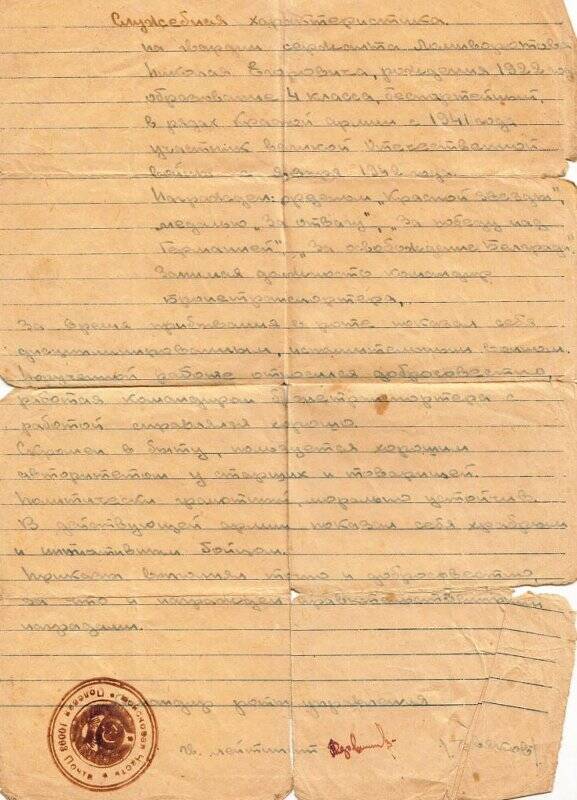 Служебная характеристика.
на гвардии сержанта
Николая Егоровича, рождения 1922 год
образование 4 класса, беспартейный,
в рядах Красной армии с 1941 года
участник великой Отечественной
войны с 1942 года.
Награжден: орденом „Красной звезды",
медалью „За отвагу", „За победу над
Германией", „За освобождение Белграда".
Занимая должность командир
бронетранспортера,
За время пребывания в роте показал себя
дисциплинированным, воином.
работе относился добросовестно,
работая командиром бронетранспортера с
работой справлялся хорошо.
Скромен в быту, пользуется хорошим
авторитетом у старших и товарищей.
Политически грамотный, морально устойчив.
В действующей армии показал себя храбрым
и бойцом.
Приказы выполнял и добросовестно,
за что и награжден
наградами.
Командир роты управления
гв. лейтенант
Полевая Почта Войсковая Часть 10093